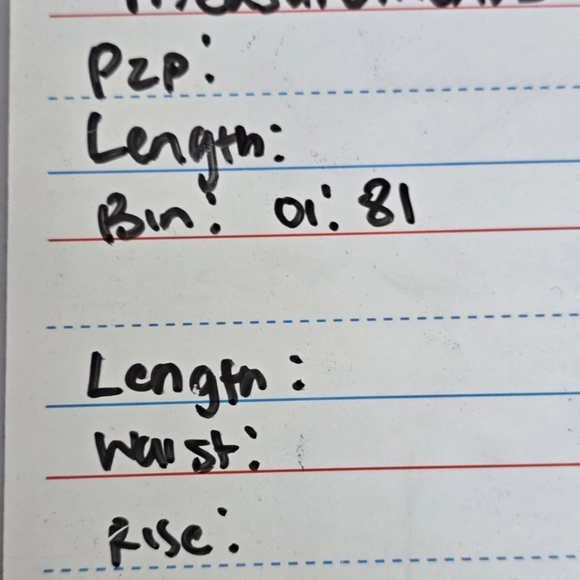 Measurements
P2P:
Length:
Bin: 01: 81
Length:
Waist:
Rise: